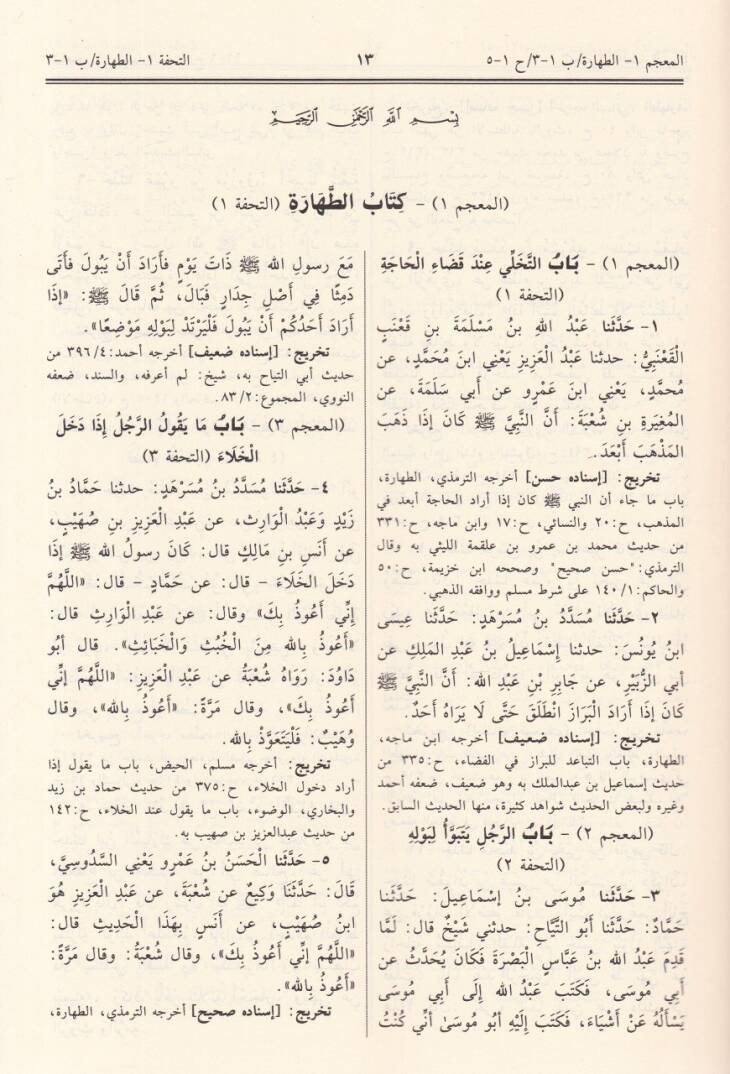 المعجم ١- الطهارة/ ب ١-٣/ ح ١-٥
١٣
التحفة ١- الطهارة/ ب ١-٣
بِسْمِ اللَّهِ الرَّحْمَٰنِ الرَّحِيمِ
(المعجم ١) - كِتَابُ الطَّهَارَةِ (التحفة ١)
(المعجم ١) - بَابُ التَّخَلِّي عِنْدَ قَضَاءِ الْحَاجَةِ
(التحفة ١)
١- حَدَّثَنا عَبْدُ اللهِ بنُ مَسْلَمَةَ بنِ قَعْنَبٍ
الْقَعْنَبِيُّ: حدثنا عَبْدُ الْعَزِيزِ يَعْنِي ابنَ مُحَمَّدٍ، عن
مُحمَّدٍ، يَعْنِي ابنَ عَمْرٍو عن أَبي سَلَمَةَ، عن
المُغِيَرةِ بنِ شُعْبَةَ: أنَّ النَّبِيَّ ﷺ كَانَ إذَا ذَهَبَ
المَذْهَبَ أَبْعَدَ.
تخريج: [إسناده حسن] أخرجه الترمذي، الطهارة،
باب ما جاء أن النبي ﷺ كان إذا أراد الحاجة أبعد في
المذهب، ح:٢٠ والنسائي، ح:١٧ وابن ماجه، ح:٣٣١
من حديث محمد بن عمرو بن علقمة الليثي به وقال
الترمذي: "حسن صحيح" وصححه ابن خزيمة، ح:٥٠
والحاكم:١٤٠/١ على شرط مسلم ووافقه الذهبي.
٢- حَدَّثَنا مُسَدَّدُ بنُ مُسَرْهَدٍ: حَدَّثَنا عِيسَى
ابنُ يُونُسَ: حدثنا إسْمَاعِيلُ بنُ عَبْدِ المَلِكِ عن
أبي الزُّبَيْرِ، عن جَابِرِ بْنِ عَبْدِ الله: أنَّ النَّبِيَّ ﷺ
كَانَ إذَا أَرَادَ الْبَرَازَ انْطَلَقَ حَتَّى لَا يَرَاهُ أَحَدٌ.
تخريج: [إسناده ضعيف] أخرجه ابن ماجه،
الطهارة، باب التباعد للبراز في الفضاء، ح:٣٣٥ من
حديث إسماعيل بن عبدالملك به وهو ضعيف، ضعفه أحمد
وغيره ولبعض الحديث شواهد كثيرة، منها الحديث السابق.
(المعجم ٢) - بَابُ الرَّجُلِ يَتَبَوَّأُ لِبَوْلِهِ
(التحفة ٢)
٣- حَدَّثَنا مُوسَى بنُ إسْمَاعِيلَ: حَدَّثَنا
حَمَّادٌ: حَدَّثَنا أَبُو التَّيَّاحِ: حدثني شَيْخٌ قال: لَمَّا
قَدِمَ عَبْدُ الله بنُ عَبَّاسٍ الْبَصْرَةَ فَكَانَ يُحَدَّثُ عن
أَبِي مُوسَى، فَكَتَبَ عَبْدُ الله إلَى أَبِي مُوسَى
يَسْأَلُهُ عَنْ أَشْيَاءَ، فَكَتَبَ إلَيْهِ أَبُو مُوسَىٰ أنِّي كُنْتُ
مَعَ رسولِ الله ﷺ ذَاتَ يَوْمٍ فأَرَادَ أَنْ يَبُولَ فأَتَى
دَمِثًا فِي أَصْلِ جِدَارٍ فَبَالَ، ثُمَّ قَالَ ﷺ: «إذَا
أَرَادَ أَحَدُكُمْ أَنْ يَبُولَ فَلْيَرْتَدْ لِبَوْلِهِ مَوْضِعًا».
تخريج: [إسناده ضعيف] أخرجه أحمد:٣٩٦/٤ من
حديث أبي التياح به، شيخ: لم أعرفه، والسند، ضعفه
النووي، المجموع:٨٣/٢.
(المعجم ٣) - بَابُ مَا يَقُولُ الرَّجُلُ إذَا دَخَلَ
الْخَلَاءَ (التحفة ٣)
٤- حَدَّثَنا مُسَدَّدُ بنُ مُسَرْهَدٍ: حدثنا حَمَّادُ بنُ
زَيْدٍ وَعَبْدُ الْوَارِثِ، عن عَبْدِ الْعَزِيزِ بنِ صُهَيْبٍ،
عن أَنَسِ بنِ مَالِكٍ قال: كَانَ رسولُ الله ﷺ إذَا
دَخَلَ الْخَلَاءَ - قال: عن حَمَّادٍ - قال: «اللَّهُمَّ
إنِّي أَعُوذُ بِكَ» وقال: عن عَبْدِ الْوَارِثِ قال:
«أَعُوذُ بِالله مِنَ الْخُبُثِ وَالْخَبَائِثِ». قال أَبُو
دَاوُدَ: رَوَاهُ شُعْبَةُ عن عَبْدِ الْعَزِيزِ: «اللَّهُمَّ إنِّي
أَعُوذُ بِكَ»، وقال مَرَّةً: «أَعُوذُ بِالله»، وقال
وُهَيْبٌ: فَلْيَتَعَوَّذْ بِالله.
تخريج: أخرجه مسلم، الحيض، باب ما يقول إذا
أراد دخول الخلاء، ح:٣٧٥ من حديث حماد بن زيد
والبخاري، الوضوء، باب ما يقول عند الخلاء، ح:١٤٢
من حديث عبدالعزيز بن صهيب به.
٥- حَدَّثَنا الْحَسَنُ بنُ عَمْرٍو يَعْنِي السَّدُوسِيَّ،
قَالَ: حَدَّثَنَا وَكِيعٌ عن شُعْبَةَ، عن عَبْدِ الْعَزِيزِ هُوَ
ابنُ صُهَيْبٍ، عن أَنَسٍ بِهَذَا الْحَدِيثِ قال:
«اللَّهُمَّ إنِّي أَعُوذُ بِكَ»، وقال شُعْبَةُ: وقال مَرَّةً:
«أَعُوذُ بِالله».
تخريج: [إسناده صحيح] أخرجه الترمذي، الطهارة،